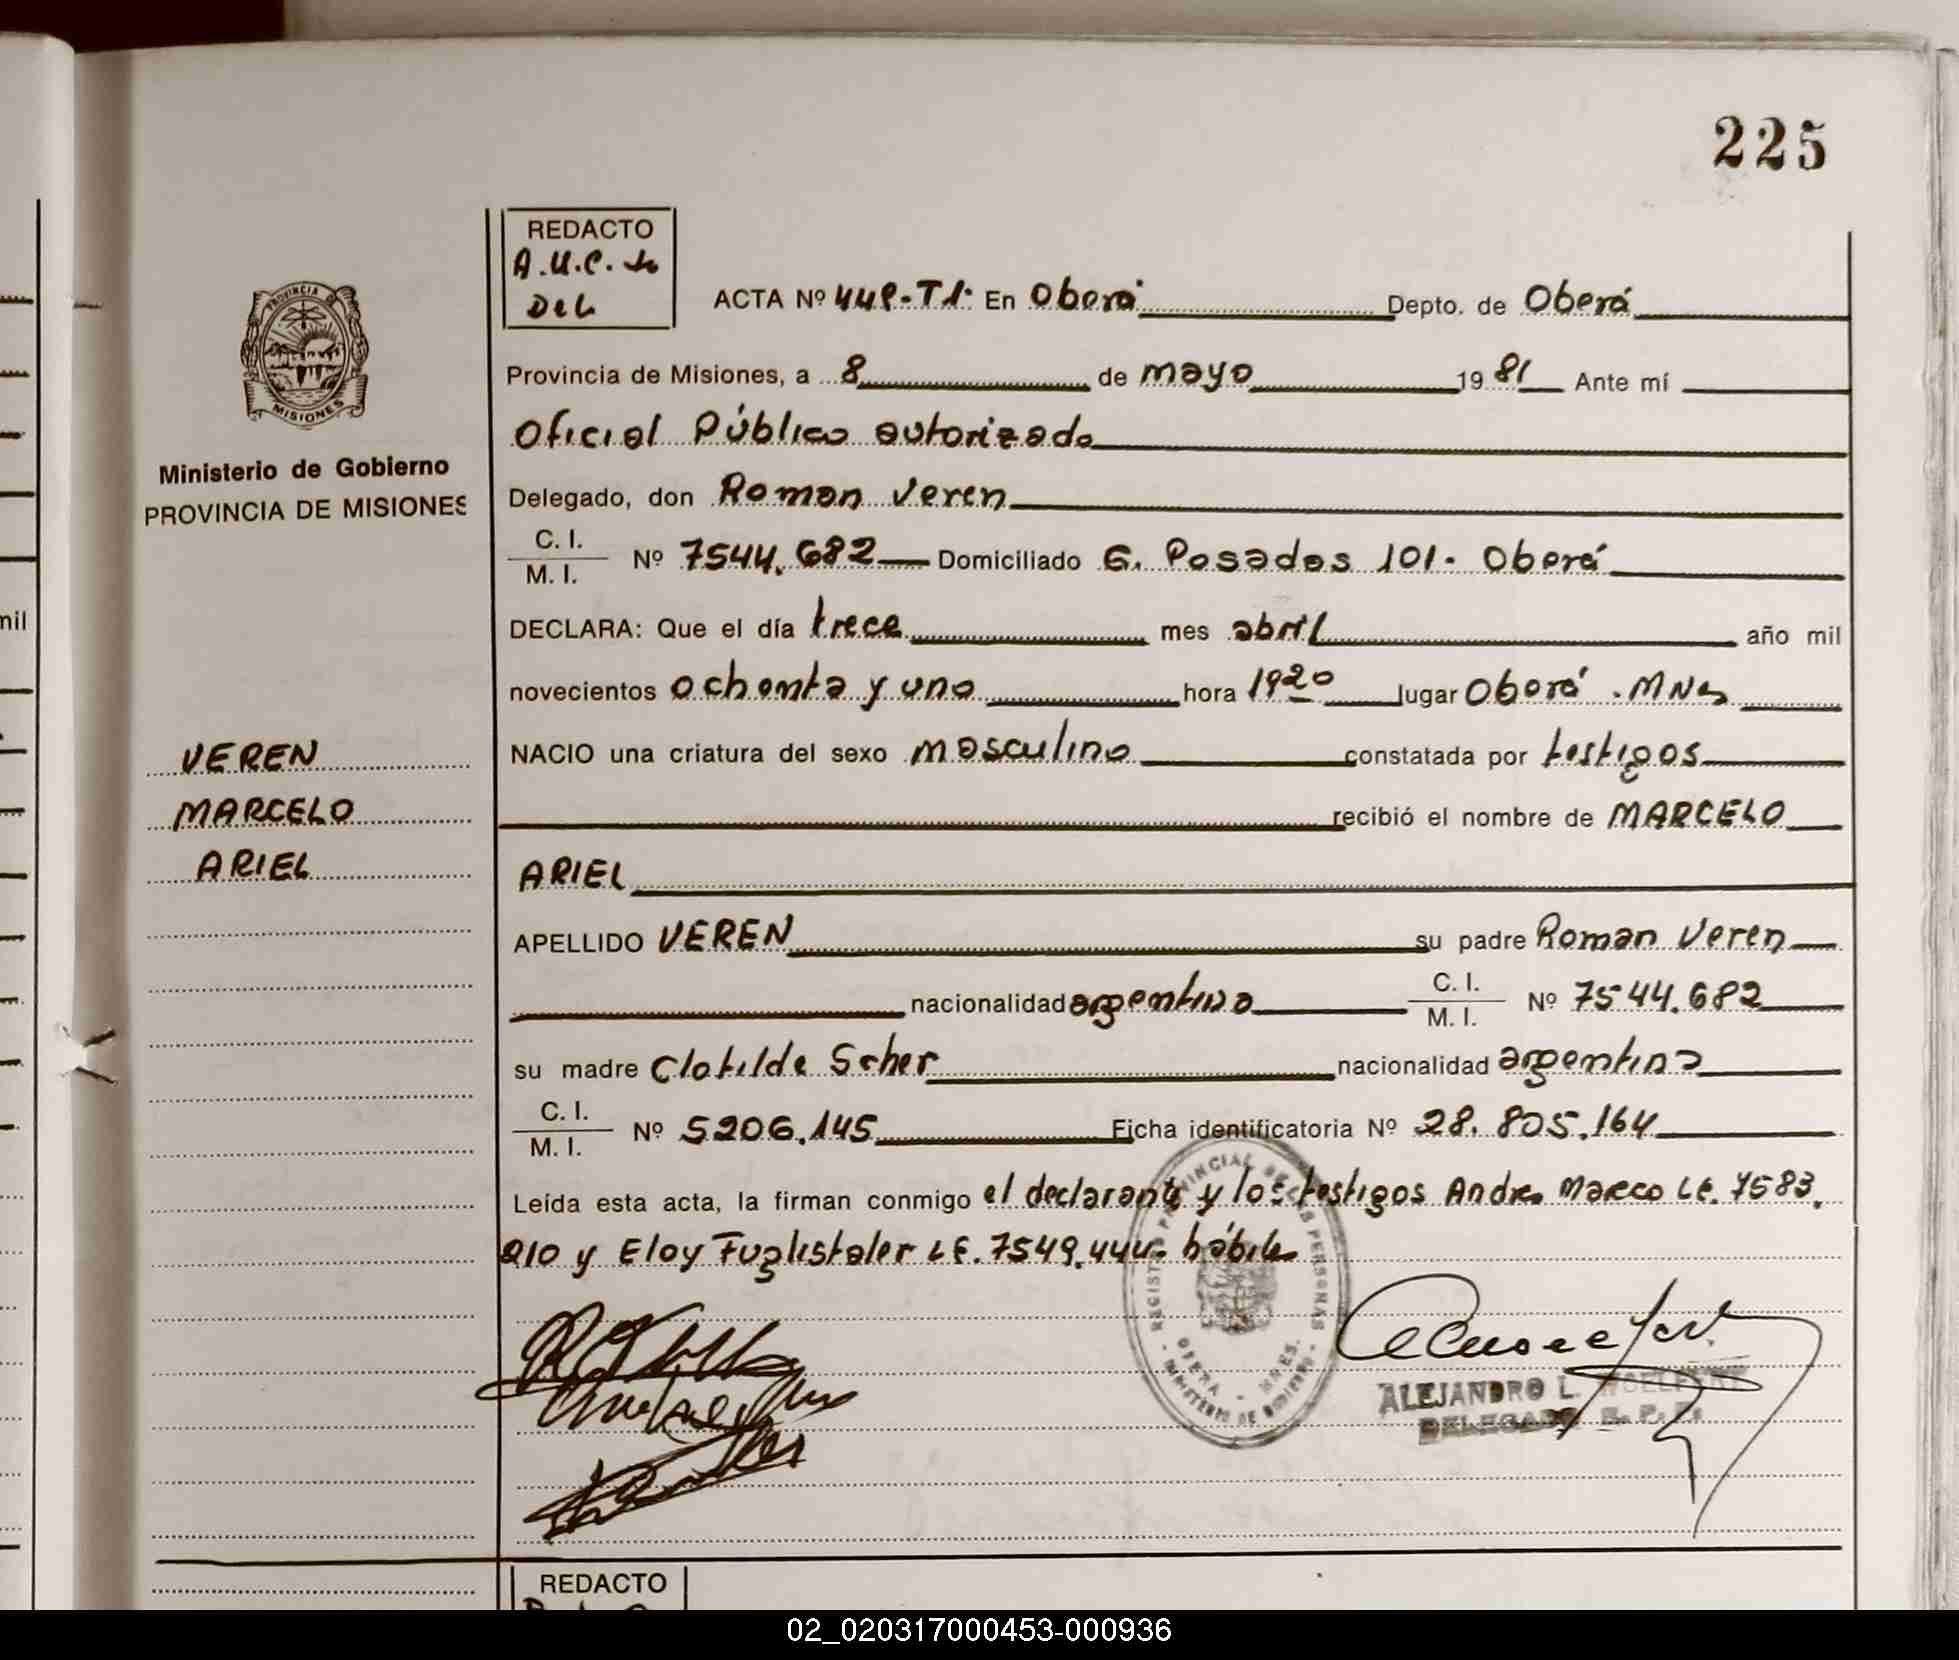 225
REDACTO
A.U.C. to
Del
ACTA Nº 448-T1: En Oberá Depto. de Oberá
Provincia de Misiones, a 8 de mayo 1981 Ante mí
Oficial Público autorizado
Delegado, don Roman Veren
C. I.
M. I. Nº 7544.682 Domiciliado G. Posadas 101. Oberá
DECLARA: Que el día trece mes abril año mil
novecientos ochenta y uno hora 1920 lugar Oberá .MNes
NACIO una criatura del sexo masculino constatada por testigos
recibió el nombre de MARCELO
ARIEL
APELLIDO VEREN su padre Roman Veren
nacionalidad argentina C. I.
M. I. Nº 7544.682
su madre Clotilde Scher nacionalidad argentina
C. I.
M. I. Nº 5206.145 Ficha identificatoria Nº 28.805.164
Leída esta acta, la firman conmigo el declarante y los testigos Andres Marco LE. 7583.
210 y Eloy Fuglistaler LE. 7549.444. hábiles
PROVINCIA DE
MISIONES
Ministerio de Gobierno
PROVINCIA DE MISIONES
VEREN
MARCELO
ARIEL
REGISTRO PROVINCIAL DE LAS PERSONAS
OBERA - MNES.
MINISTERIO DE GOBIERNO
ALEJANDRO L.
DELEGADO R. P. P.
REDACTO
mil
02_020317000453-000936